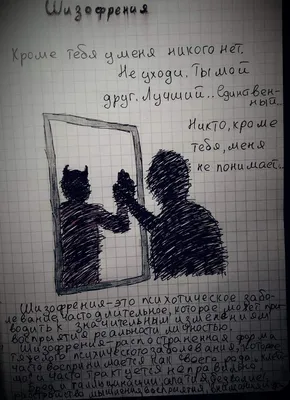 Шизофрения
Кроме тебя у меня никого нет.
Не уходи. Ты мой
друг. Лучший.. Единствен-
ный
Никто, кроме
тебя, меня
не понимает.
Шизофрения - это психотическое забо-
левание, часто длительное, которое может при-
водить к значительным изменениям
восприятия реальности личностью.
Шизофрения - распространенная форма
тяжелого психического заболевания, которое
часто воспринимается как своего рода
и часто трактуется неправильно.
галлюцинации, апатия, безволие,
мышления, восприятия